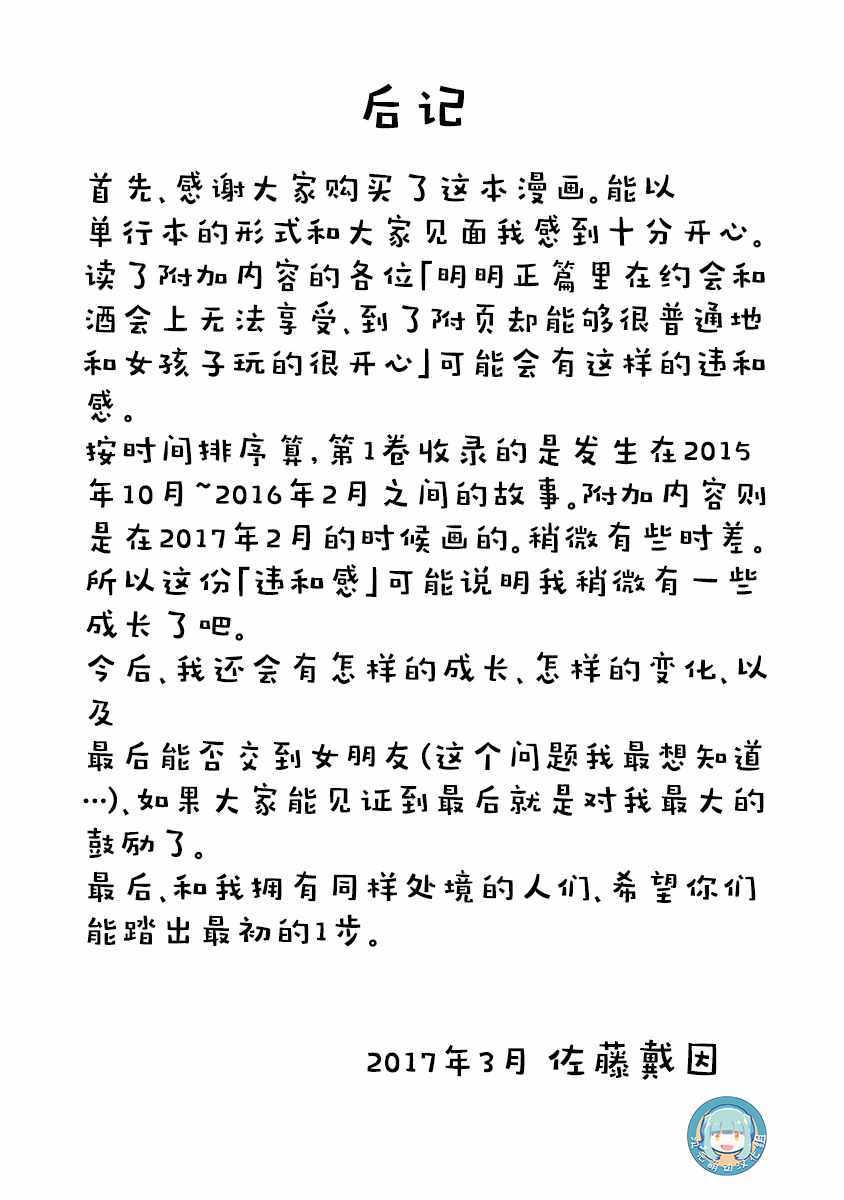 后记
首先、感谢大家购买了这本漫画。能以
单行本的形式和大家见面我感到十分开心。
读了附加内容的各位「明明正篇里在约会和
酒会上无法享受、到了附页却能够很普通地
和女孩子玩的很开心」可能会有这样的违和
感。
按时间排序算,第1卷收录的是发生在2015
年10月~2016年2月之间的故事。附加内容则
是在2017年2月的时候画的。稍微有些时差。
所以这份「违和感」可能说明我稍微有一些
成长了吧。
今后、我还会有怎样的成长、怎样的变化、以
及
最后能否交到女朋友(这个问题我最想知道
…)、如果大家能见证到最后就是对我最大的
鼓励了。
最后、和我拥有同样处境的人们、希望你们
能踏出最初的1步。
2017年3月 佐藤戴因